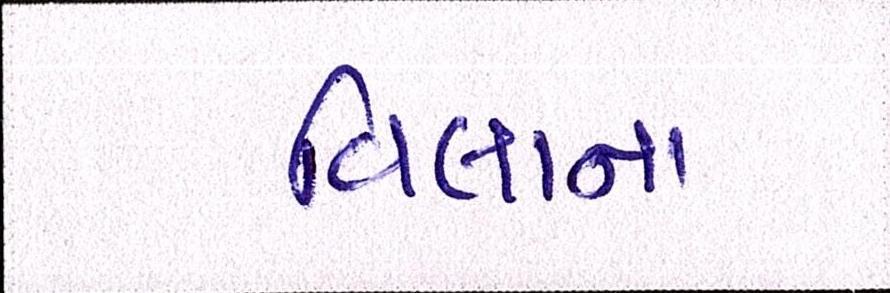 વિલાના